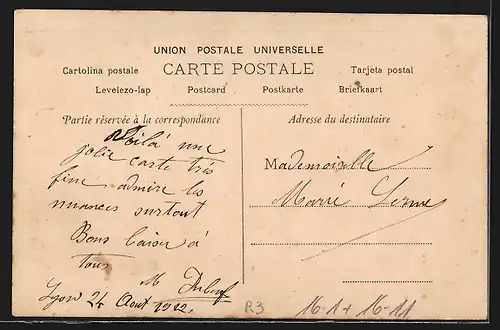 UNION POSTALE UNIVERSELLE
Cartolina postale CARTE POSTALE Tarjeta postal
Levelezo-lap Postcard Postkarte Briefkaart
Partie réservée à la correspondance
Voilà une
jolie carte très
fine admire les
nuances surtout
Bons baiser à
tous
M
Lyon 24 Aout 1912.
Adresse du destinataire
Mademoiselle
Marie
R3
16-1 + 16-11